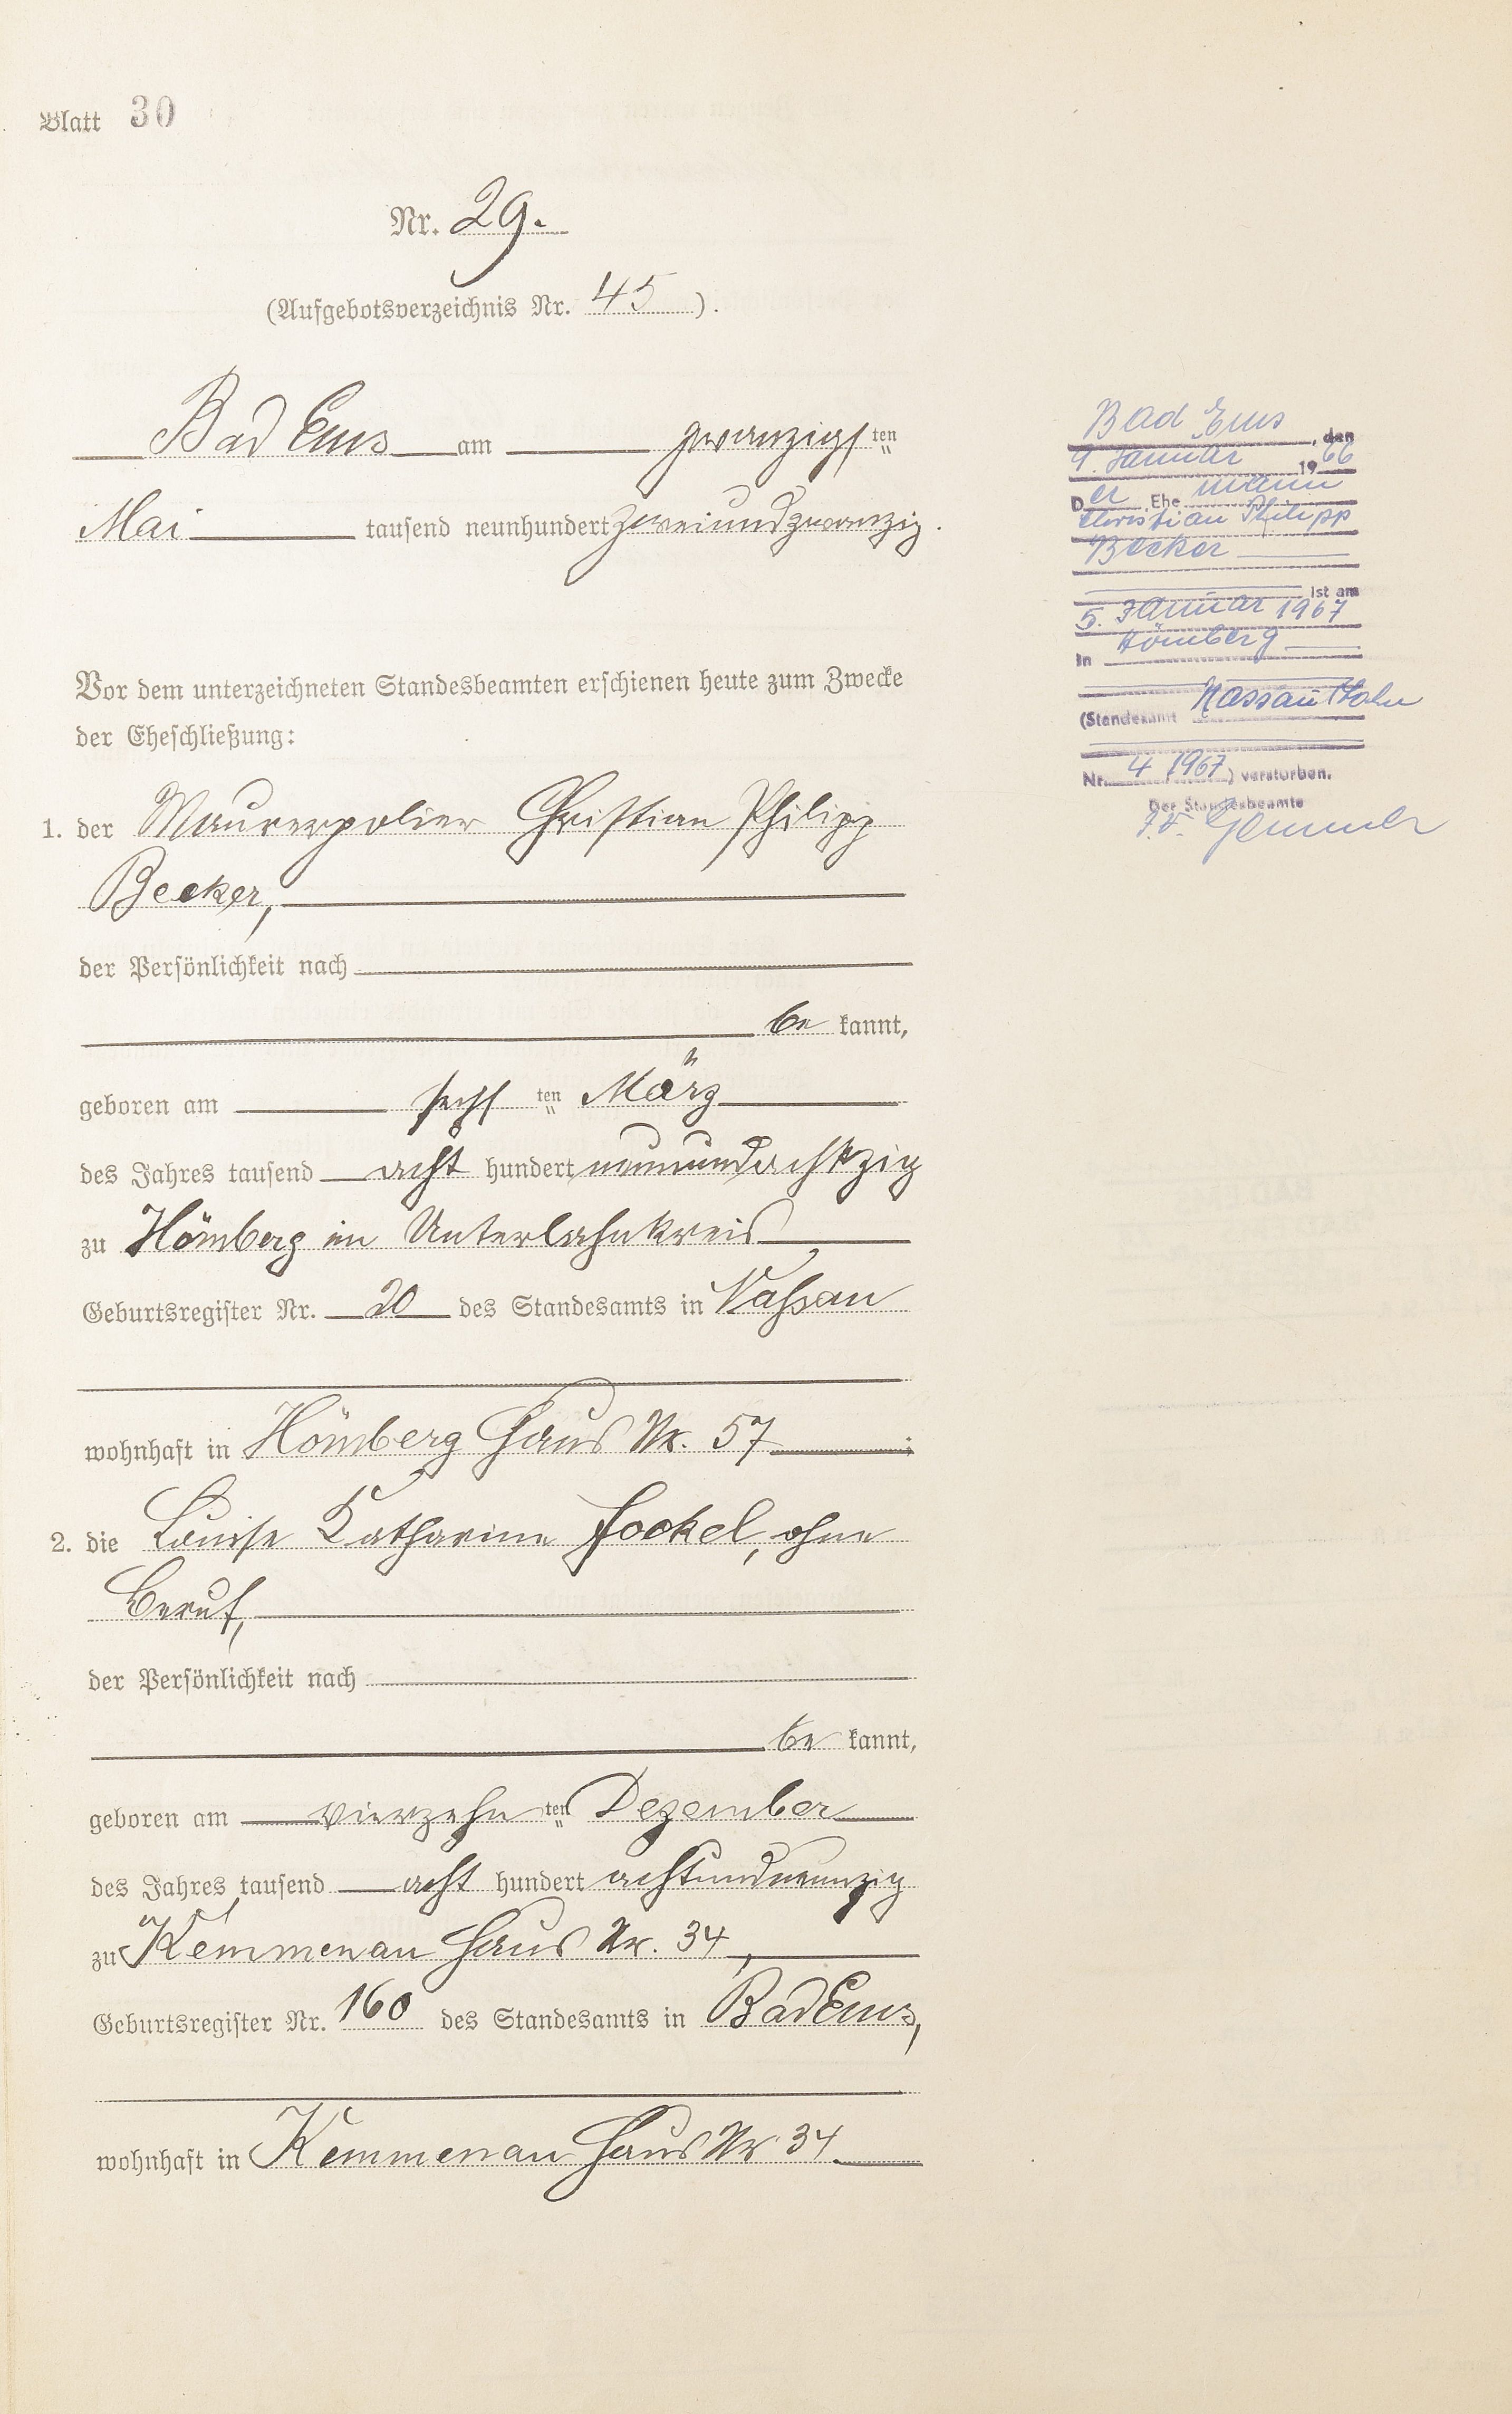 Blatt 30
Nr. 29.
(Aufgebotsverzeichnis Nr. 45).
Bad Ems am zwanzigsten
Mai tausend neunhundert zweiundzwanzig.
Vor dem unterzeichneten Standesbeamten erschienen heute zum Zwecke
der Eheschließung:
1. der Maurerpolier Christian Philipp
Becker,
der Persönlichkeit nach
be kannt,
geboren am sechsten März
des Jahres tausend acht hundert neunundachtzig
zu Hömberg im Unterlahnkreis
Geburtsregister Nr. 20 des Standesamts in Nassau
wohnhaft in Hömberg Haus Nr. 57;
2. die Louise Katharine Jockel, ohne
Beruf,
der Persönlichkeit nach
be kannt,
geboren am vierzehnten Dezember
des Jahres tausend acht hundert achtundneunzig
zu Kemmenau Haus Nr. 34,
Geburtsregister Nr. 160 des Standesamts in Bad Ems,
wohnhaft in Kemmenau Haus Nr. 34
Bad Ems, den
9. Januar 1966
Der Ehemann
Christian Philipp
Becker
ist am
5. Januar 1967
in Hömberg
(Standesamt Nassau/Lahn
Nr. 4/1967) verstorben.
Der Standesbeamte
I.V.